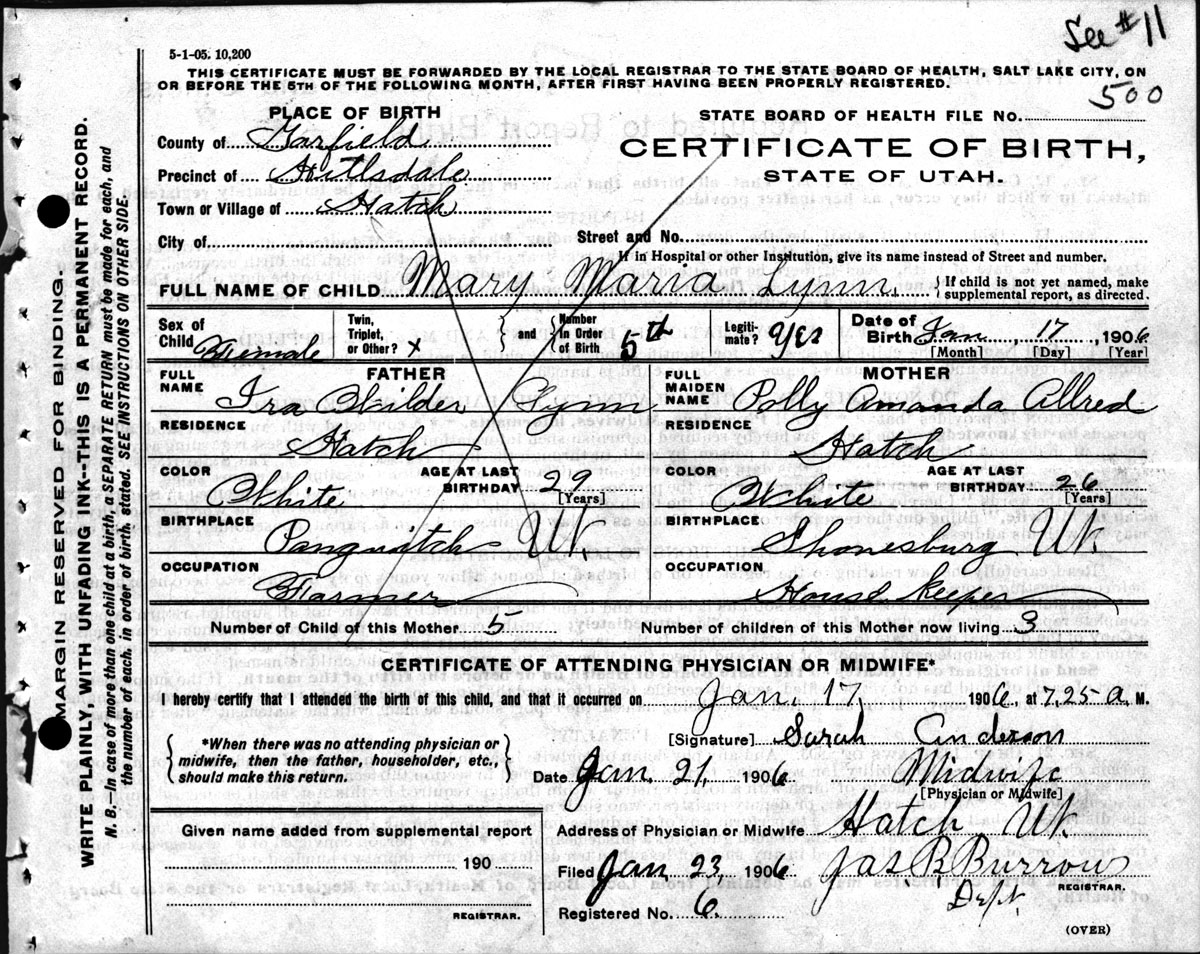 See #11
5-1-05. 10,200
THIS CERTIFICATE MUST BE FORWARDED BY THE LOCAL REGISTRAR TO THE STATE BOARD OF HEALTH, SALT LAKE CITY, ON
OR BEFORE THE 5TH OF THE FOLLOWING MONTH, AFTER FIRST HAVING BEEN PROPERLY REGISTERED.
500
PLACE OF BIRTH
STATE BOARD OF HEALTH FILE NO.
County of Garfield
CERTIFICATE OF BIRTH,
STATE OF UTAH.
Precinct of
Town or Village of Hatch
City of
Street and No.
If in Hospital or other Institution, give its name instead of Street and number.
FULL NAME OF CHILD Mary Maria Lynn. {If child is not yet named, make supplemental report, as directed.
Sex of Child Female
Twin, Triplet, or Other? x
and
Number in Order of Birth 5th
Legiti-mate? Yes
Date of Birth Jan 17, 1906
[Month] [Day] [Year]
FATHER
MOTHER
FULL NAME Ira Wilder Lynn
FULL MAIDEN NAME Polly Amanda Allred
RESIDENCE Hatch
RESIDENCE Hatch
COLOR White
AGE AT LAST BIRTHDAY 29 [Years]
COLOR White
AGE AT LAST BIRTHDAY 26 [Years]
BIRTHPLACE Panguitch Ut.
BIRTHPLACE Shonesburg Ut.
OCCUPATION Farmer
OCCUPATION House keeper
Number of Child of this Mother 5
Number of children of this Mother now living 3
CERTIFICATE OF ATTENDING PHYSICIAN OR MIDWIFE*
I hereby certify that I attended the birth of this child, and that it occurred on Jan. 17, 1906, at 7,25 a. M.
{*When there was no attending physician or midwife, then the father, householder, etc., should make this return.}
[Signature] Sarah Anderson
Date Jan. 21, 1906 Midwife
[Physician or Midwife]
Given name added from supplemental report
190
REGISTRAR.
Address of Physician or Midwife Hatch, Ut.
Filed Jan 23, 1906 Jas B. Burrow
REGISTRAR.
Dept
Registered No. 6
(OVER)
MARGIN RESERVED FOR BINDING.
WRITE PLAINLY, WITH UNFADING INK--THIS IS A PERMANENT RECORD.
N. B.—In case of more than one child at a birth, a SEPARATE RETURN must be made for each, and
the number of each, in order of birth, stated. SEE INSTRUCTIONS ON OTHER SIDE.